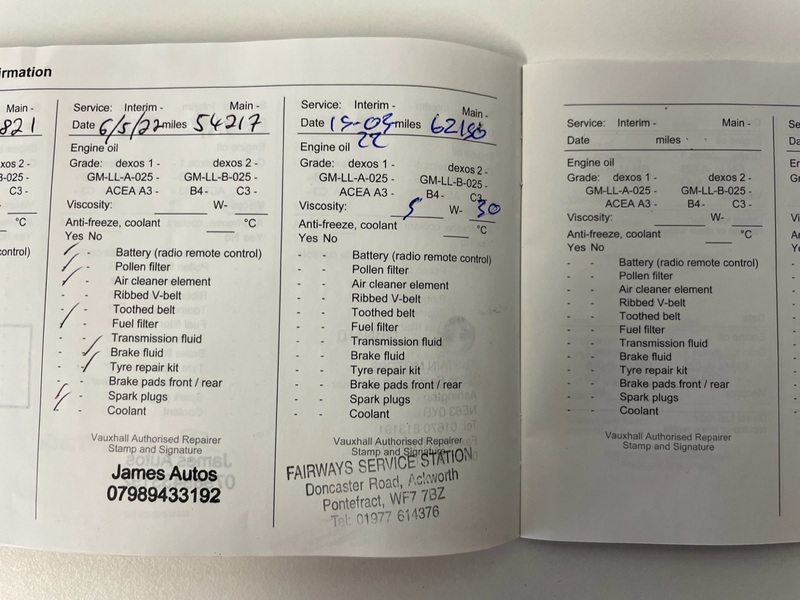 rmation
Main -
821
dexos 2 -
B-025 -
C3 -
°C
control)
Service: Interim - Main -
Date 6/5/22 miles 54217
Engine oil
Grade: dexos 1 - dexos 2 -
GM-LL-A-025 - GM-LL-B-025 -
ACEA A3 - B4- C3 -
Viscosity: W-
Anti-freeze, coolant °C
Yes No
- Battery (radio remote control)
- Pollen filter
- Air cleaner element
- - Ribbed V-belt
- Toothed belt
- Fuel filter
- Transmission fluid
- Brake fluid
- Tyre repair kit
- - Brake pads front / rear
- Spark plugs
- Coolant
Vauxhall Authorised Repairer
Stamp and Signature
James Autos
07989433192
Service: Interim - Main -
Date miles
22
Engine oil
Grade: dexos 1 - dexos 2 -
GM-LL-A-025 - GM-LL-B-025 -
ACEA A3 - B4- C3
Viscosity: 5 W- 30
Anti-freeze, coolant °C
Yes No
- - Battery (radio remote control)
- - Pollen filter
- - Air cleaner element
- - Ribbed V-belt
- - Toothed belt
- - Fuel filter
- - Transmission fluid
- - Brake fluid
- - Tyre repair kit
- - Brake pads front / rear
- - Spark plugs
- - Coolant
Vauxhall Authorised Repairer
Stamp and Signature
FAIRWAYS SERVICE STATION
Doncaster Road, Ackworth
Pontefract, WF7 7BZ
Tel: 01977 614376
Service: Interim - Main -
Date miles
Engine oil
Grade: dexos 1 - dexos 2 -
GM-LL-A-025 - GM-LL-B-025 -
ACEA A3 - B4- C3 -
Viscosity: W-
Anti-freeze, coolant °C
Yes No
- - Battery (radio remote control)
- - Pollen filter
- - Air cleaner element
- - Ribbed V-belt
- - Toothed belt
- - Fuel filter
- - Transmission fluid
- - Brake fluid
- - Tyre repair kit
- - Brake pads front / rear
- - Spark plugs
- - Coolant
Vauxhall Authorised Repairer
Stamp and Signature